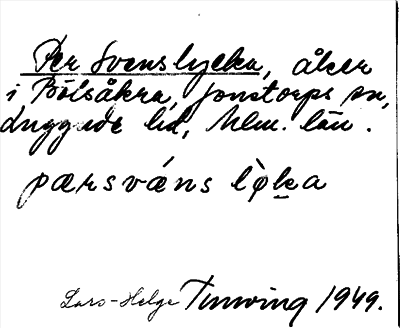 Per Svenslycka, åker
i Bölsåkra, Jonstorps sn,
Luggude hd, Mlm. län.
pærsvæ̀ns lø̀ka
Lars-Helge Tunving 1949.